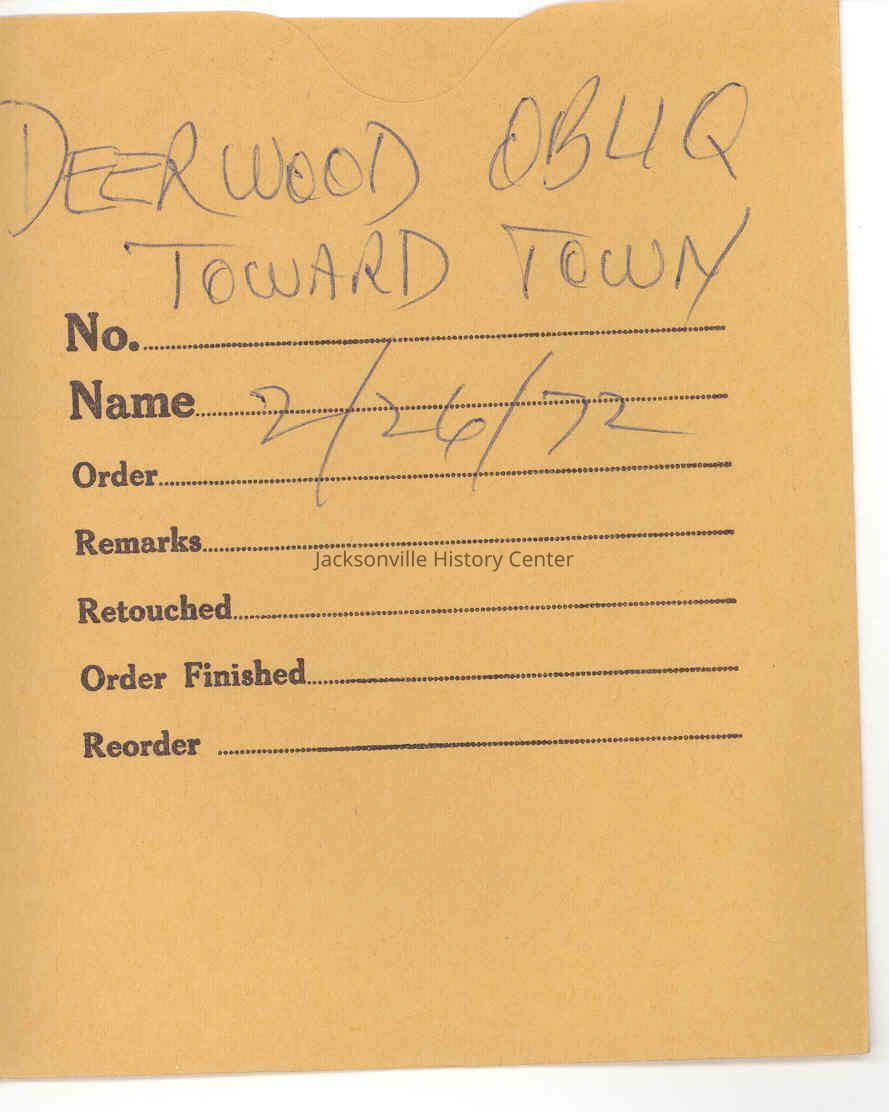 DEERWOOD OBLIQ
TOWARD TOWN
No.
Name 2/26/72
Order
Remarks
Jacksonville History Center
Retouched
Order Finished
Reorder